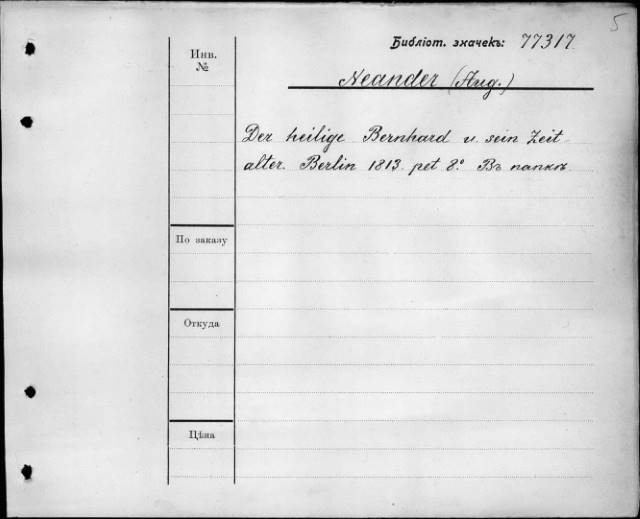 5
Библіот. значекъ: 77317
Инв.
№
Neander (Aug.)
Der heilige Bernhard u. sein Zeit-
alter. Berlin 1813. pet 8.º Въ папкѣ.
По заказу
Откуда
Цѣна